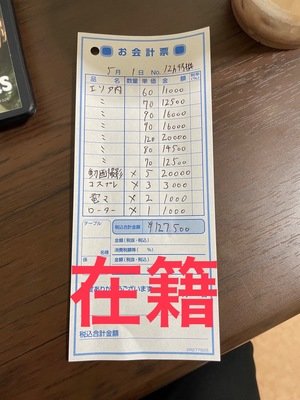 お会計票
5月 1日 No.
品名 数量 単価 金額
エリア内 60 11000
〃 70 12500
〃 90 16000
〃 90 16000
〃 120 20000
〃 80 14500
〃 70 12500
動画撮影 × 5 20000
コスプレ × 3 3000
電マ × 2 1000
ローター × 1 1000
テーブル 税込合計金額 ¥127,500
金額(税抜・税込)
名様 消費税額等( %)
係 金額(税抜・税込)
在籍
ございます
税込合計金額